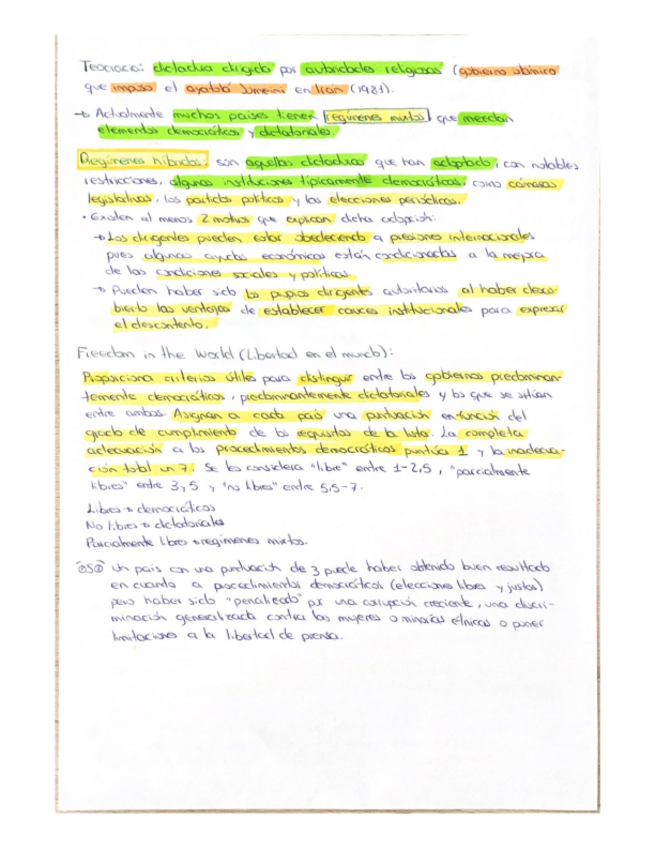 Teocracia: dictadura dirigida por autoridades religiosas (gobierno islámico
que impuso el ayatolá Jomeini en Irán (1981).
→ Actualmente muchos países tienen regímenes mixtos que mezclan
elementos democráticos y dictatoriales.
Regímenes híbridos: son aquellas dictaduras que han adoptado, con notables
restricciones, algunas instituciones típicamente democráticas, como cámaras
legislativas, los partidos políticos y las elecciones periódicas.
• Existen al menos 2 motivos que explican dicha adopción:
→ Los dirigentes pueden estar obedeciendo a presiones internacionales
pues algunas ayudas económicas están condicionadas a la mejora
de las condiciones sociales y políticas.
→ Pueden haber sido los propios dirigentes autoritarios al haber descu-
bierto las ventajas de establecer cauces institucionales para expresar
el descontento.
Freedom in the World (Libertad en el mundo):
Proporciona criterios útiles para distinguir entre los gobiernos predominan-
temente democráticos, predominantemente dictatoriales y los que se sitúan
entre ambos. Asignan a cada país una puntuación en función del
grado de cumplimiento de los requisitos de la lista. La completa
adecuación a los procedimientos democráticos puntúa 1 y la inadecua-
ción total un 7. Se les considera "libre" entre 1-2,5, "parcialmente
libres" entre 3 y 5 y "no libres" entre 5,5-7.
Libres → democráticos
No libres → dictatoriales
Parcialmente libres → regímenes mixtos.
Un país con una puntuación de 3 puede haber obtenido buen resultado
en cuanto a procedimientos democráticos (elecciones libres y justas)
pero haber sido "penalizado" por una corrupción creciente, una discri-
minación generalizada contra las mujeres o minorías étnicas o poner
limitaciones a la libertad de prensa.